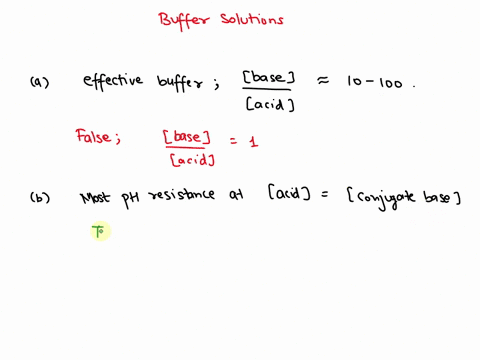 Buffer Solutions
(a) effective buffer; [base]/[acid] ≈ 10-100.
False; [base]/[acid] = 1
(b) Most pH resistance at [acid] = [conjugate base]
T